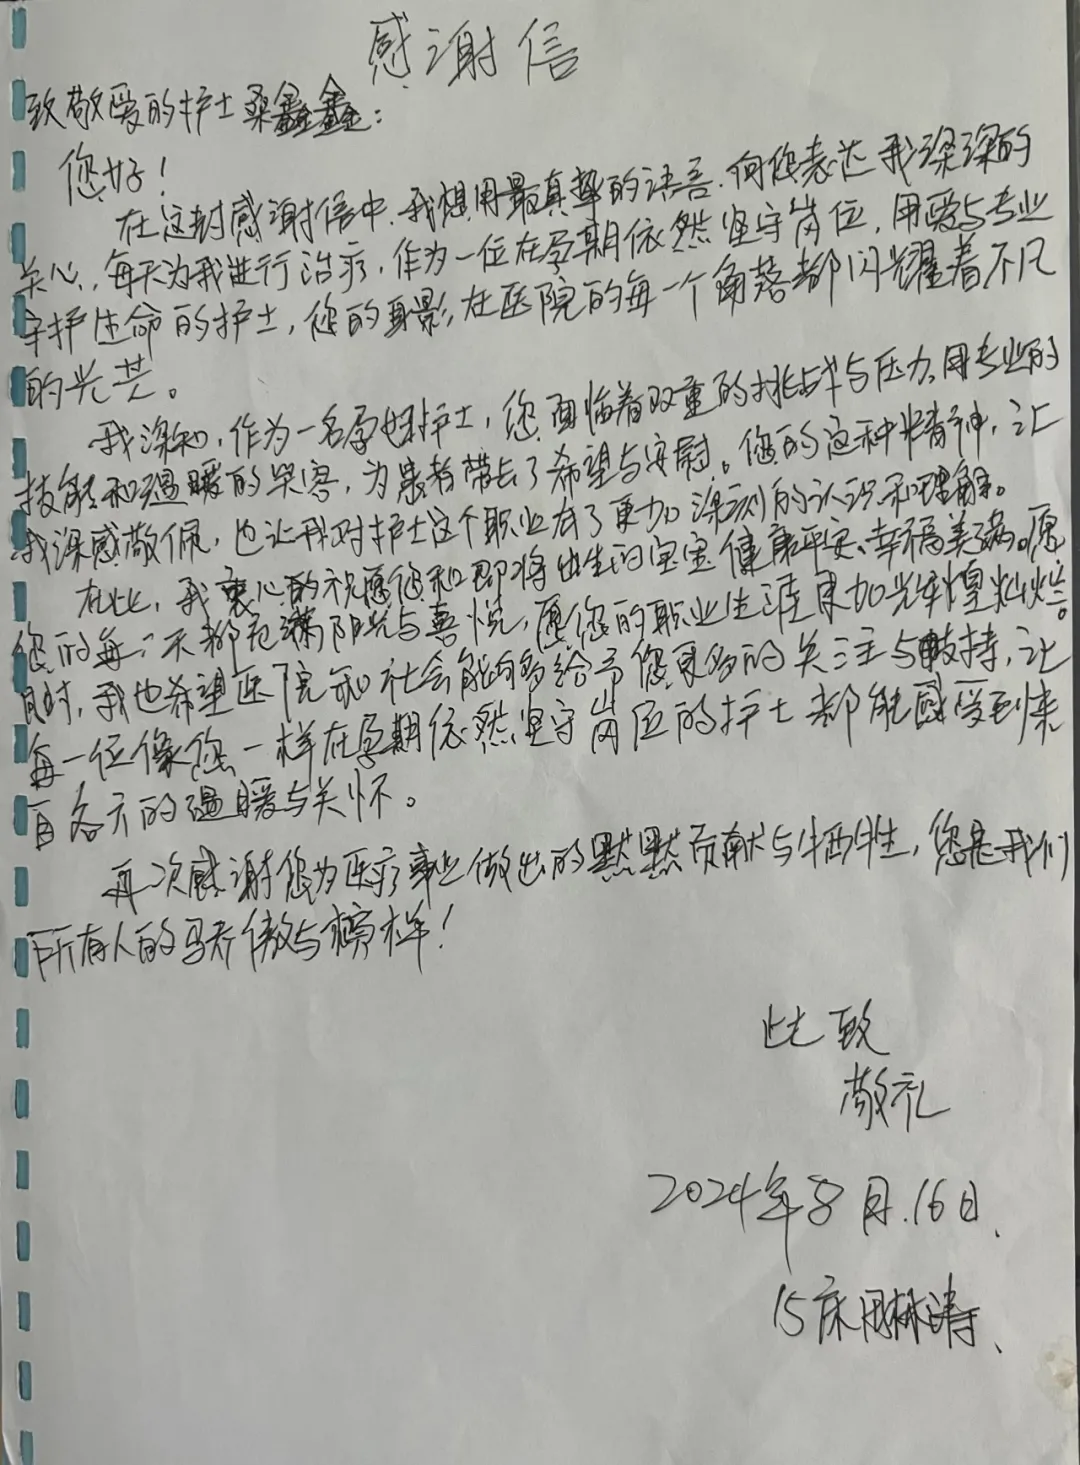 感谢信
致敬爱的护士桑鑫鑫：
您好！
在这封感谢信中，我想用最真挚的语言，向您表达我深深的
关心，每天为我进行治疗，作为一位在孕期依然坚守岗位，用爱与专业
守护生命的护士，您的身影，在医院的每一个角落都闪耀着不凡
的光芒。
我深知，作为一名孕妈护士，您面临着双重的挑战与压力，用专业的
技能和温暖的笑容，为患者带去了希望与安慰。您的这种精神，让
我深感敬佩，也让我对护士这个职业有了更加深刻的认识和理解。
在此，我衷心的祝愿您和即将出生的宝宝健康平安、幸福美满。愿
您的每一天都充满阳光与喜悦，愿您的职业生涯更加光辉煌灿烂。
同时，我也希望医院和社会能够给予您更多的关注与支持，让
每一位像您一样在孕期依然坚守岗位的护士都能感受到来
自各方的温暖与关怀。
再次感谢您为医疗事业做出的默默贡献与牺牲，您是我们
所有人的骄傲与榜样！
此致
敬礼
2024年8月.16日、
15床周林涛、